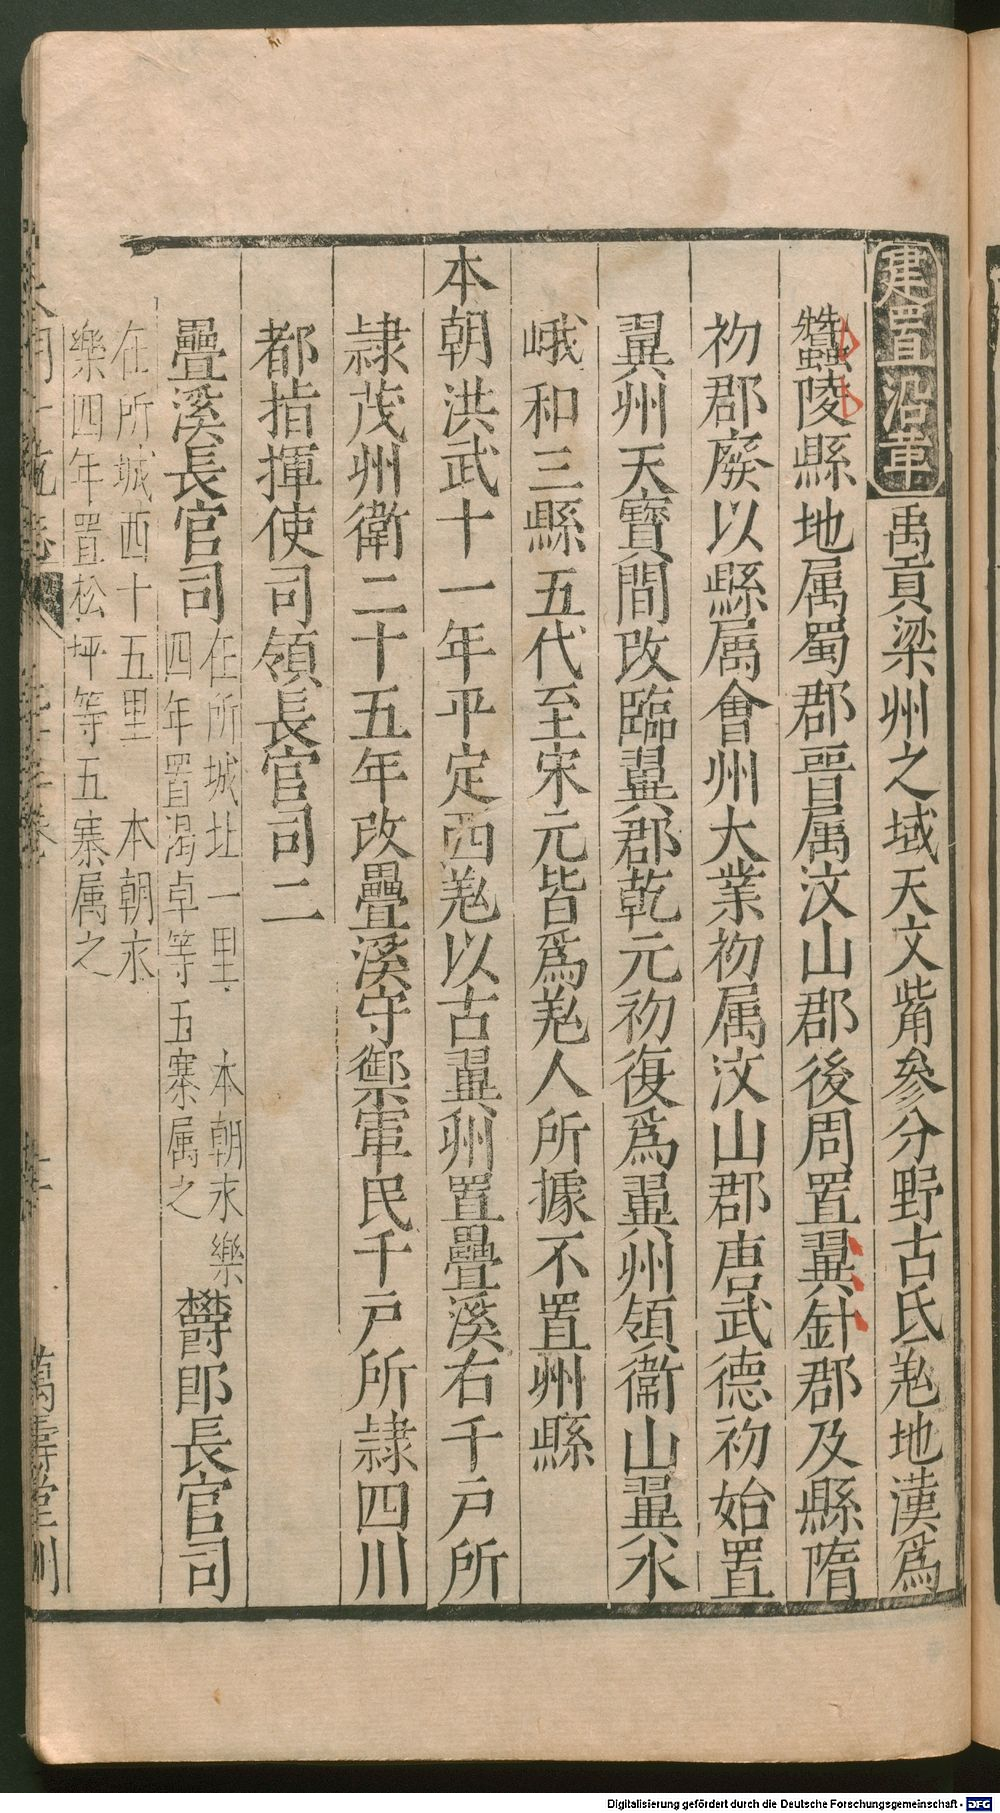 建置沿革 禹貢梁州之域天文觜參分野古氐羌地漢爲
蠶陵縣地属蜀郡晉属汶山郡後周置翼針郡及縣隋
初郡廢以縣属會州大業初属汶山郡唐武德初始置
翼州天寶間改臨翼郡乾元初復爲翼州領衞山翼水
峨和三縣五代至宋元皆爲羌人所據不置州縣
本朝洪武十一年平定西羌以古翼州置疊溪右千戸所
隷茂州衛二十五年改疊溪守禦軍民千戸所隷四川
都指揮使司領長官司二
疊溪長官司
在所城北一里 本朝永樂
四年置渴卓等五寨属之
欝郎長官司
在所城西十五里 本朝永
樂四年置松坪等五寨属之
萬壽堂刋
Digitalisierung gefördert durch die Deutsche Forschungsgemeinschaft - DFG